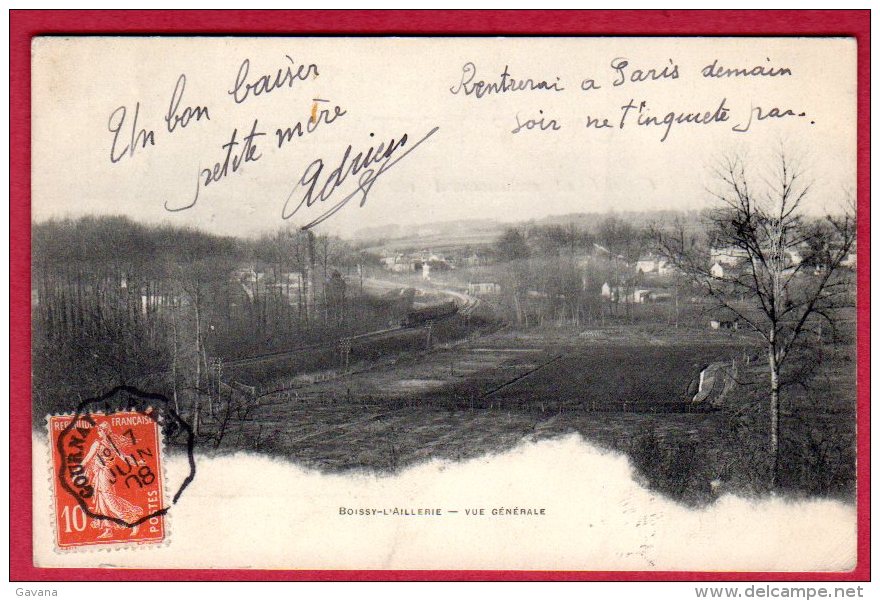 Un bon baiser
petite mère
Adrien
Rentrerai a Paris demain
soir ne t'inquiete pas.
BOISSY-L'AILLERIE — VUE GÉNÉRALE
RÉPUBLIQUE FRANÇAISE
10
GOURNAY A PARIS
1o
7
JUIN
08
Gavana
www.delcampe.net